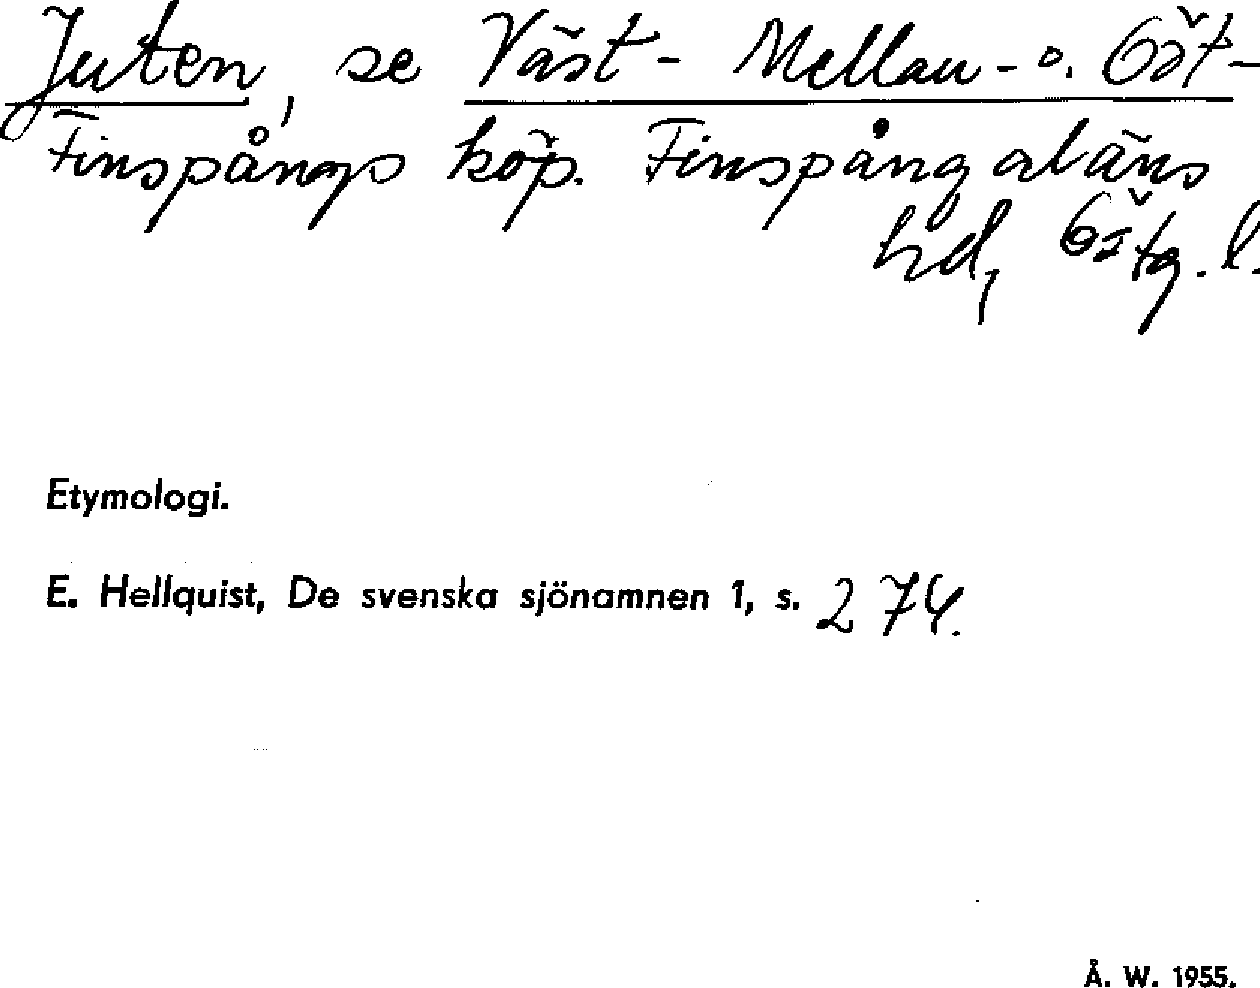 Juten, se Väst- Mellan- o. Öst-
Finspångs köp. Finspångaläns
hd, Östg. l.
Etymologi.
E. Hellquist, De svenska sjönamnen 1, s. 274.
Å. W. 1955.